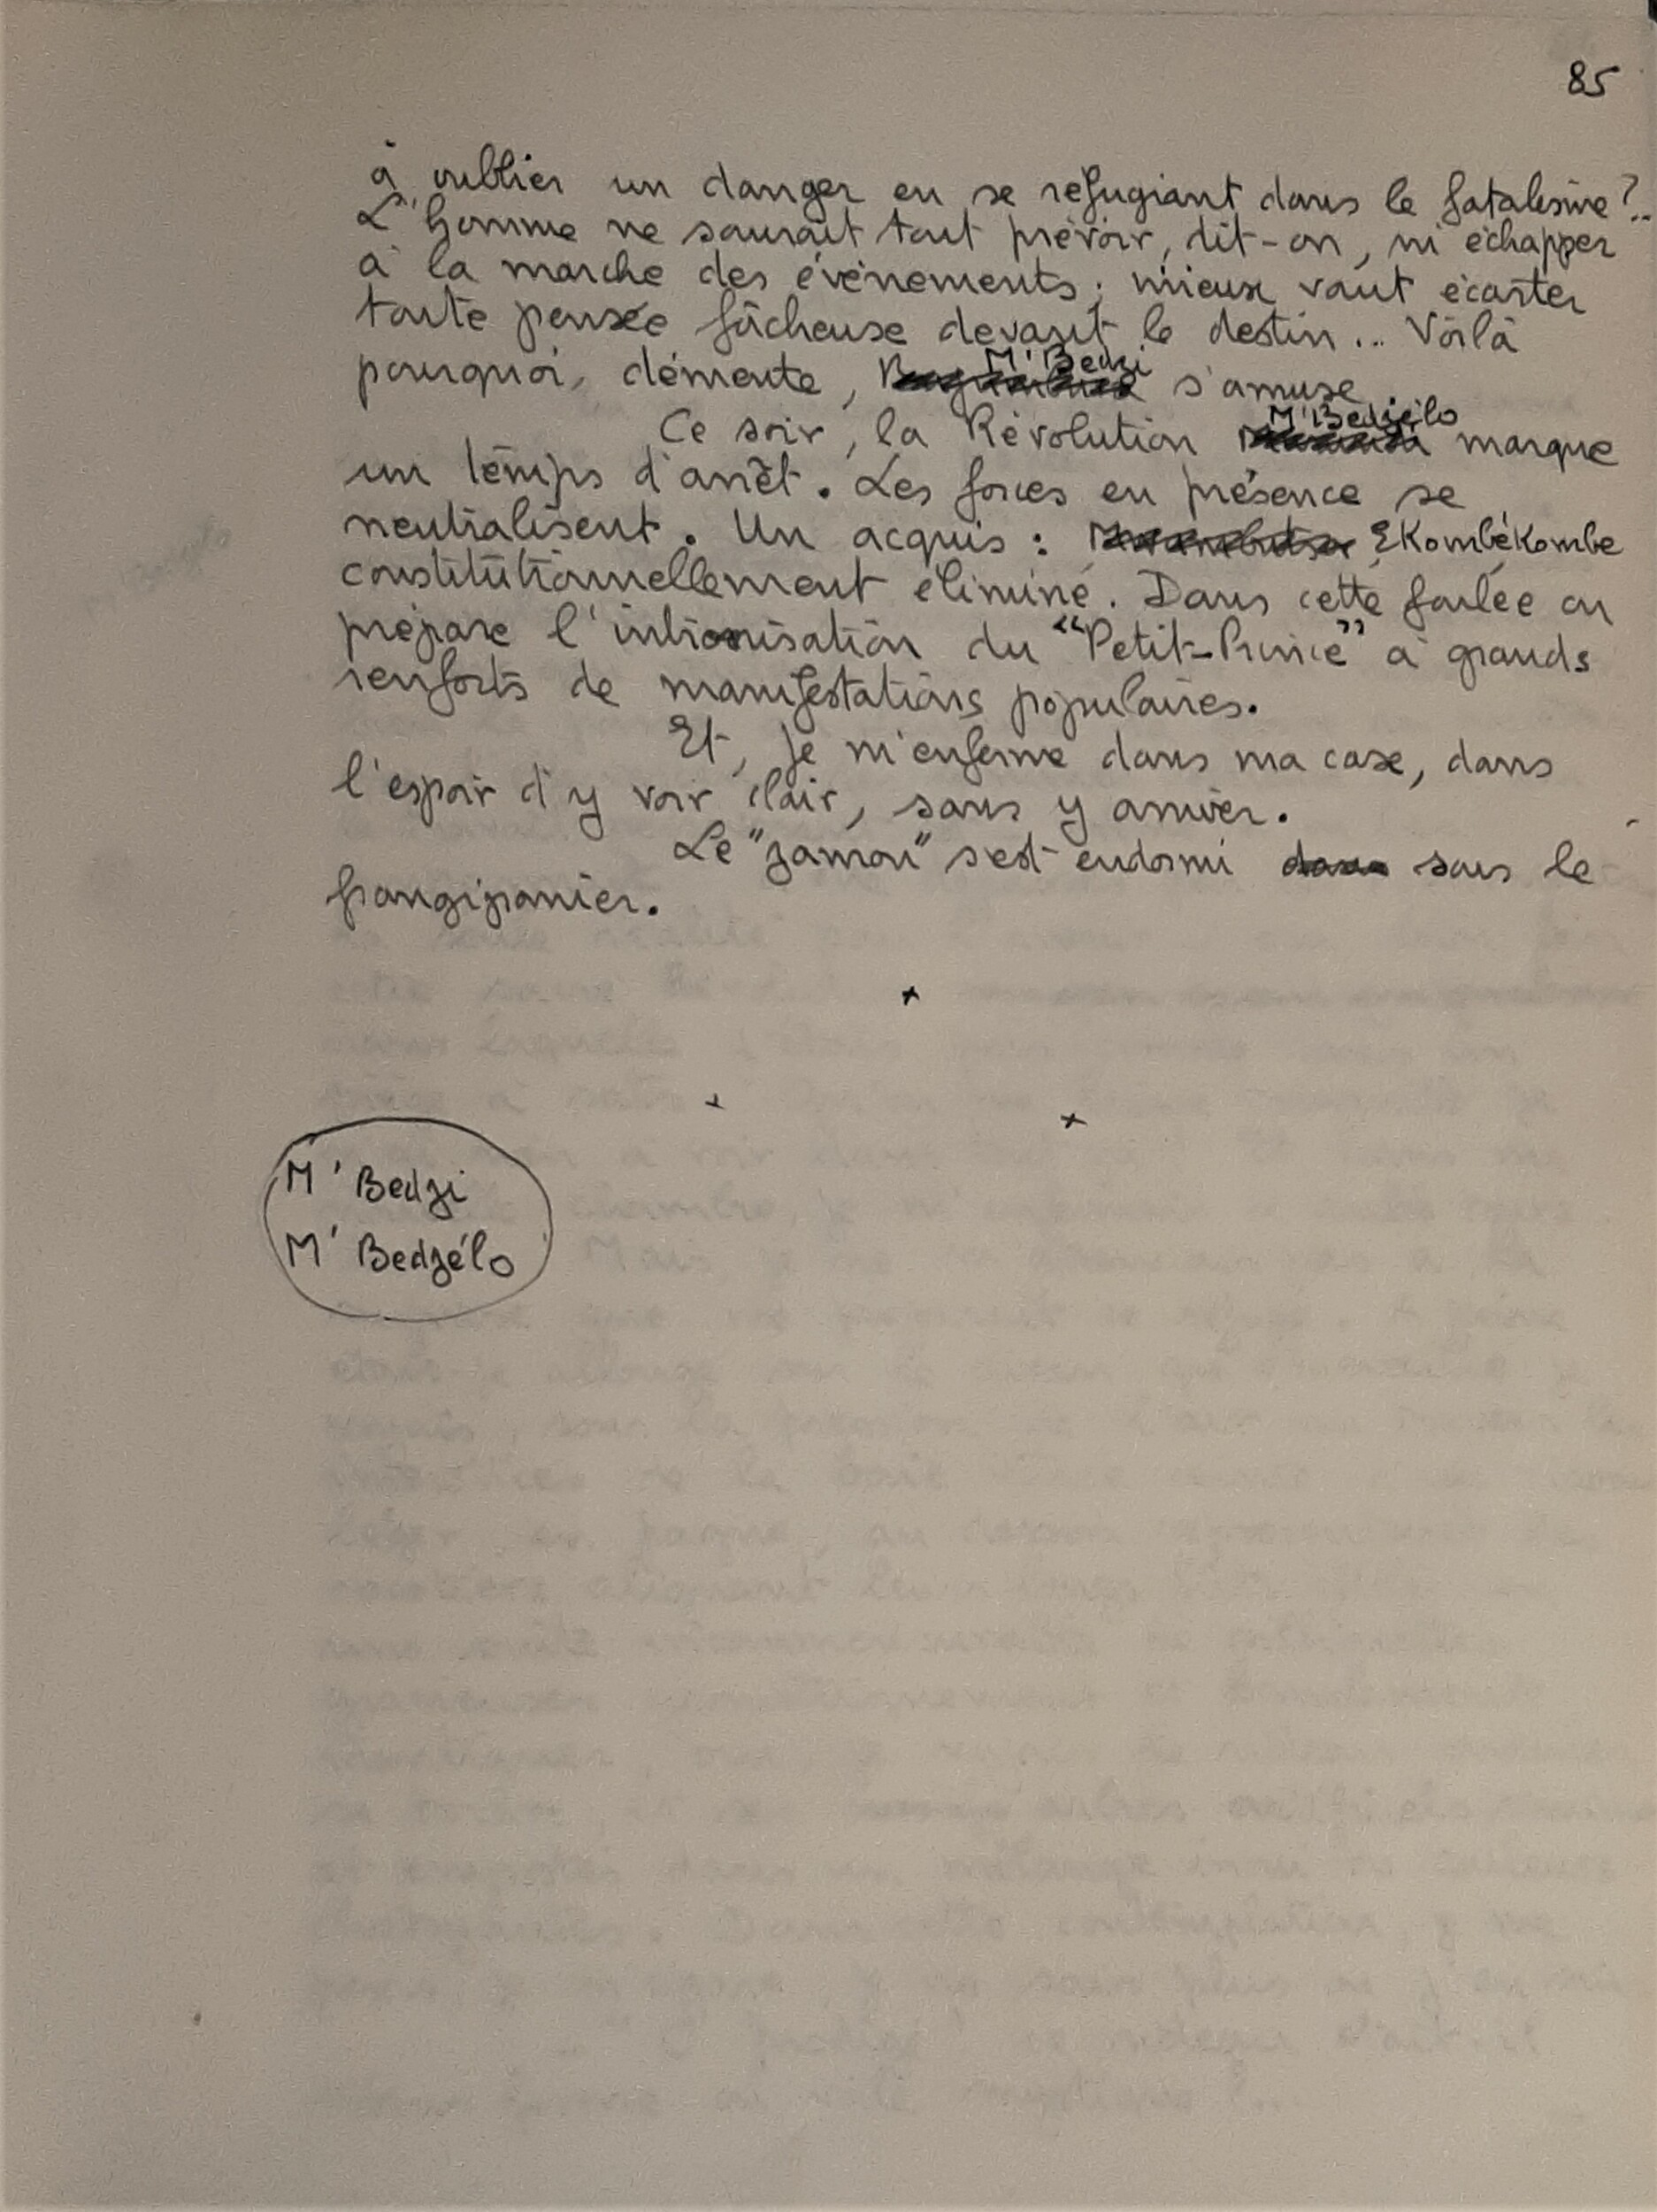 85
à oublier un danger en se réfugiant dans le fatalisme ?..
L'homme ne saurait tout prévoir, dit-on, ni échapper
à la marche des événements ; mieux vaut écarter
toute pensée fâcheuse devant le destin... Voilà
pourquoi, démente, M'Bedzi s'amuse.
Ce soir, la Révolution M'Bedzélo marque
un temps d'arrêt. Les forces en présence se
neutralisent. Un acquis : Ekombékombe
constitutionnellement éliminé. Dans cette foulée on
prépare l'intronisation du "Petit-Prince" à grands
renforts de manifestations populaires.
Et, je m'enferme dans ma case, dans
l'espoir d'y voir clair, sans y arriver.
Le "zamou" s'est endormi dans sous le
frangipanier.
M'Bedzi
M'Bedzélo